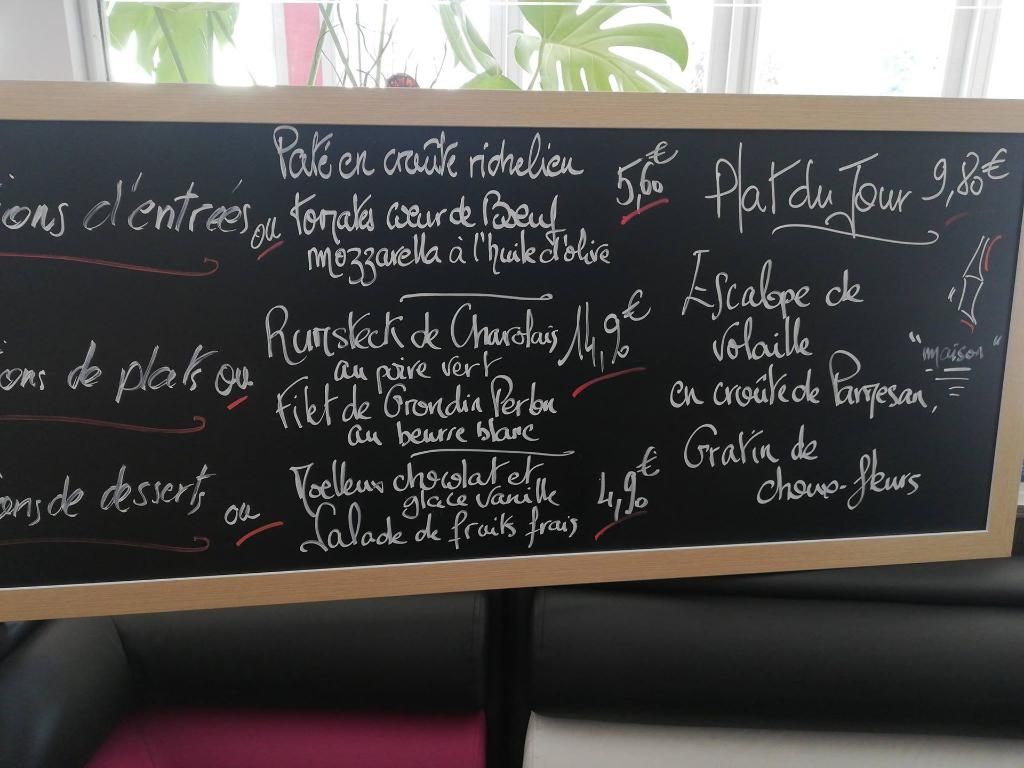 ions d'entrées
ou
Paté en croûte richelien
tomates coeur de Boeuf
mozzarella à l'huile d'olive
5,60€
ons de plats ou
Rumsteck de Charolais
au poivre vert
14,90€
Filet de Grondin Perlon
au beurre blanc
ons de desserts
ou
Moelleux chocolat et
glace vanille
Salade de fruits frais
4,90€
Plat du Jour 9,80€
Escalope de
volaille
"maison"
en croûte de Parmesan,
Gratin de
choux-fleurs